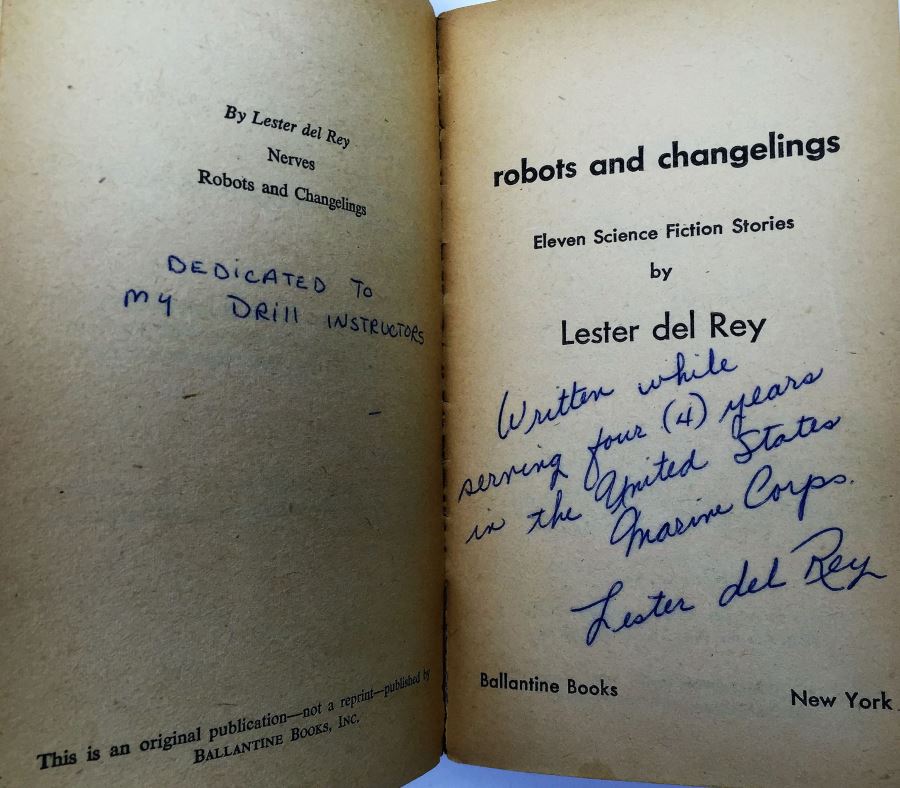 By Lester del Rey
Nerves
Robots and Changelings
DEDiCATED To
my DRill INSTRUCTORS
This is an original publication—not a reprint—published by
BALLANTINE BOOKS, INC.
robots and changelings
Eleven Science Fiction Stories
by
Lester del Rey
Written while
serving four (4) years
in the United States
Marine Corps.
Lester del Rey
Ballantine Books
New York